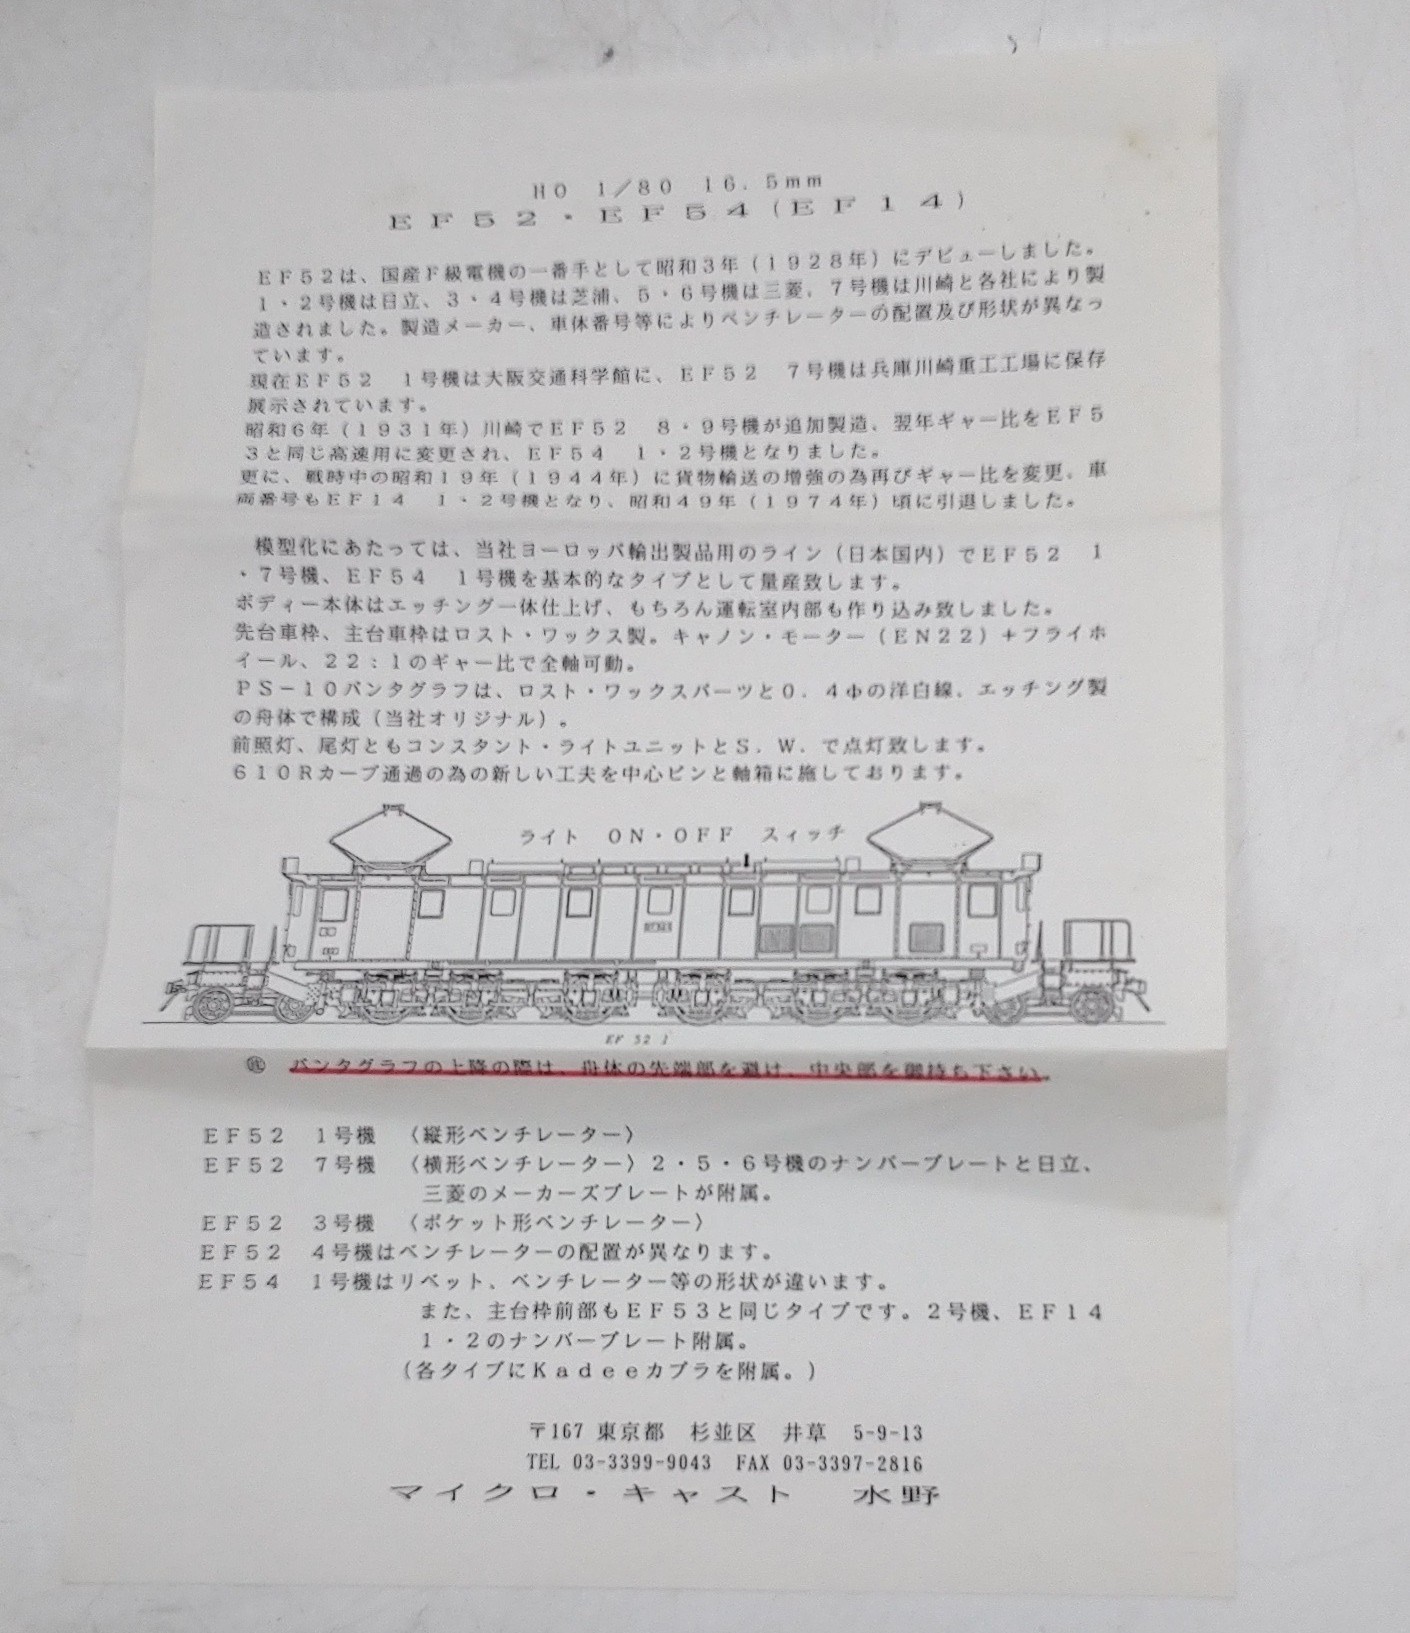 HO 1/80 16.5mm
EF52・EF54(EF14)
EF52は、国産F級電機の一番手として昭和3年(1928年)にデビューしました。
1・2号機は日立、3・4号機は芝浦、5・6号機は三菱、7号機は川崎と各社により製
造されました。製造メーカー、車体番号等によりベンチレーターの配置及び形状が異なっ
ています。
現在EF52 1号機は大阪交通科学館に、EF52 7号機は兵庫川崎重工工場に保存
展示されています。
昭和6年(1931年)川崎でEF52 8・9号機が追加製造、翌年ギャー比をEF5
3と同じ高速用に変更され、EF54 1・2号機となりました。
更に、戦時中の昭和19年(1944年)に貨物輸送の増強の為再びギャー比を変更、車
両番号もEF14 1・2号機となり、昭和49年(1974年)頃に引退しました。
模型化にあたっては、当社ヨーロッパ輸出製品用のライン(日本国内)でEF52 1
・7号機、EF54 1号機を基本的なタイプとして量産致します。
ボディー本体はエッチング一体仕上げ、もちろん運転室内部も作り込み致しました。
先台車枠、主台車枠はロスト・ワックス製。キャノン・モーター(EN22)+フライホ
イール、22:1のギャー比で全軸可動。
PS-10パンタグラフは、ロスト・ワックスパーツと0.4φの洋白線、エッチング製
の舟体で構成(当社オリジナル)。
前照灯、尾灯ともコンスタント・ライトユニットとS.W.で点灯致します。
610Rカーブ通過の為の新しい工夫を中心ピンと軸箱に施しております。
ライト ON・OFF スィッチ
EF 52 1
㊟ パンタグラフの上降の際は、舟体の先端部を避け、中央部を御持ち下さい。
EF52 1号機 〈縦形ベンチレーター〉
EF52 7号機 〈横形ベンチレーター〉2・5・6号機のナンバープレートと日立、
三菱のメーカーズプレートが附属。
EF52 3号機 〈ポケット形ベンチレーター〉
EF52 4号機はベンチレーターの配置が異なります。
EF54 1号機はリベット、ベンチレーター等の形状が違います。
また、主台枠前部もEF53と同じタイプです。2号機、EF14
1・2のナンバープレート附属。
(各タイプにKadeeカプラを附属。)
〒167 東京都 杉並区 井草 5-9-13
TEL 03-3399-9043 FAX 03-3397-2816
マイクロ・キャスト 水野